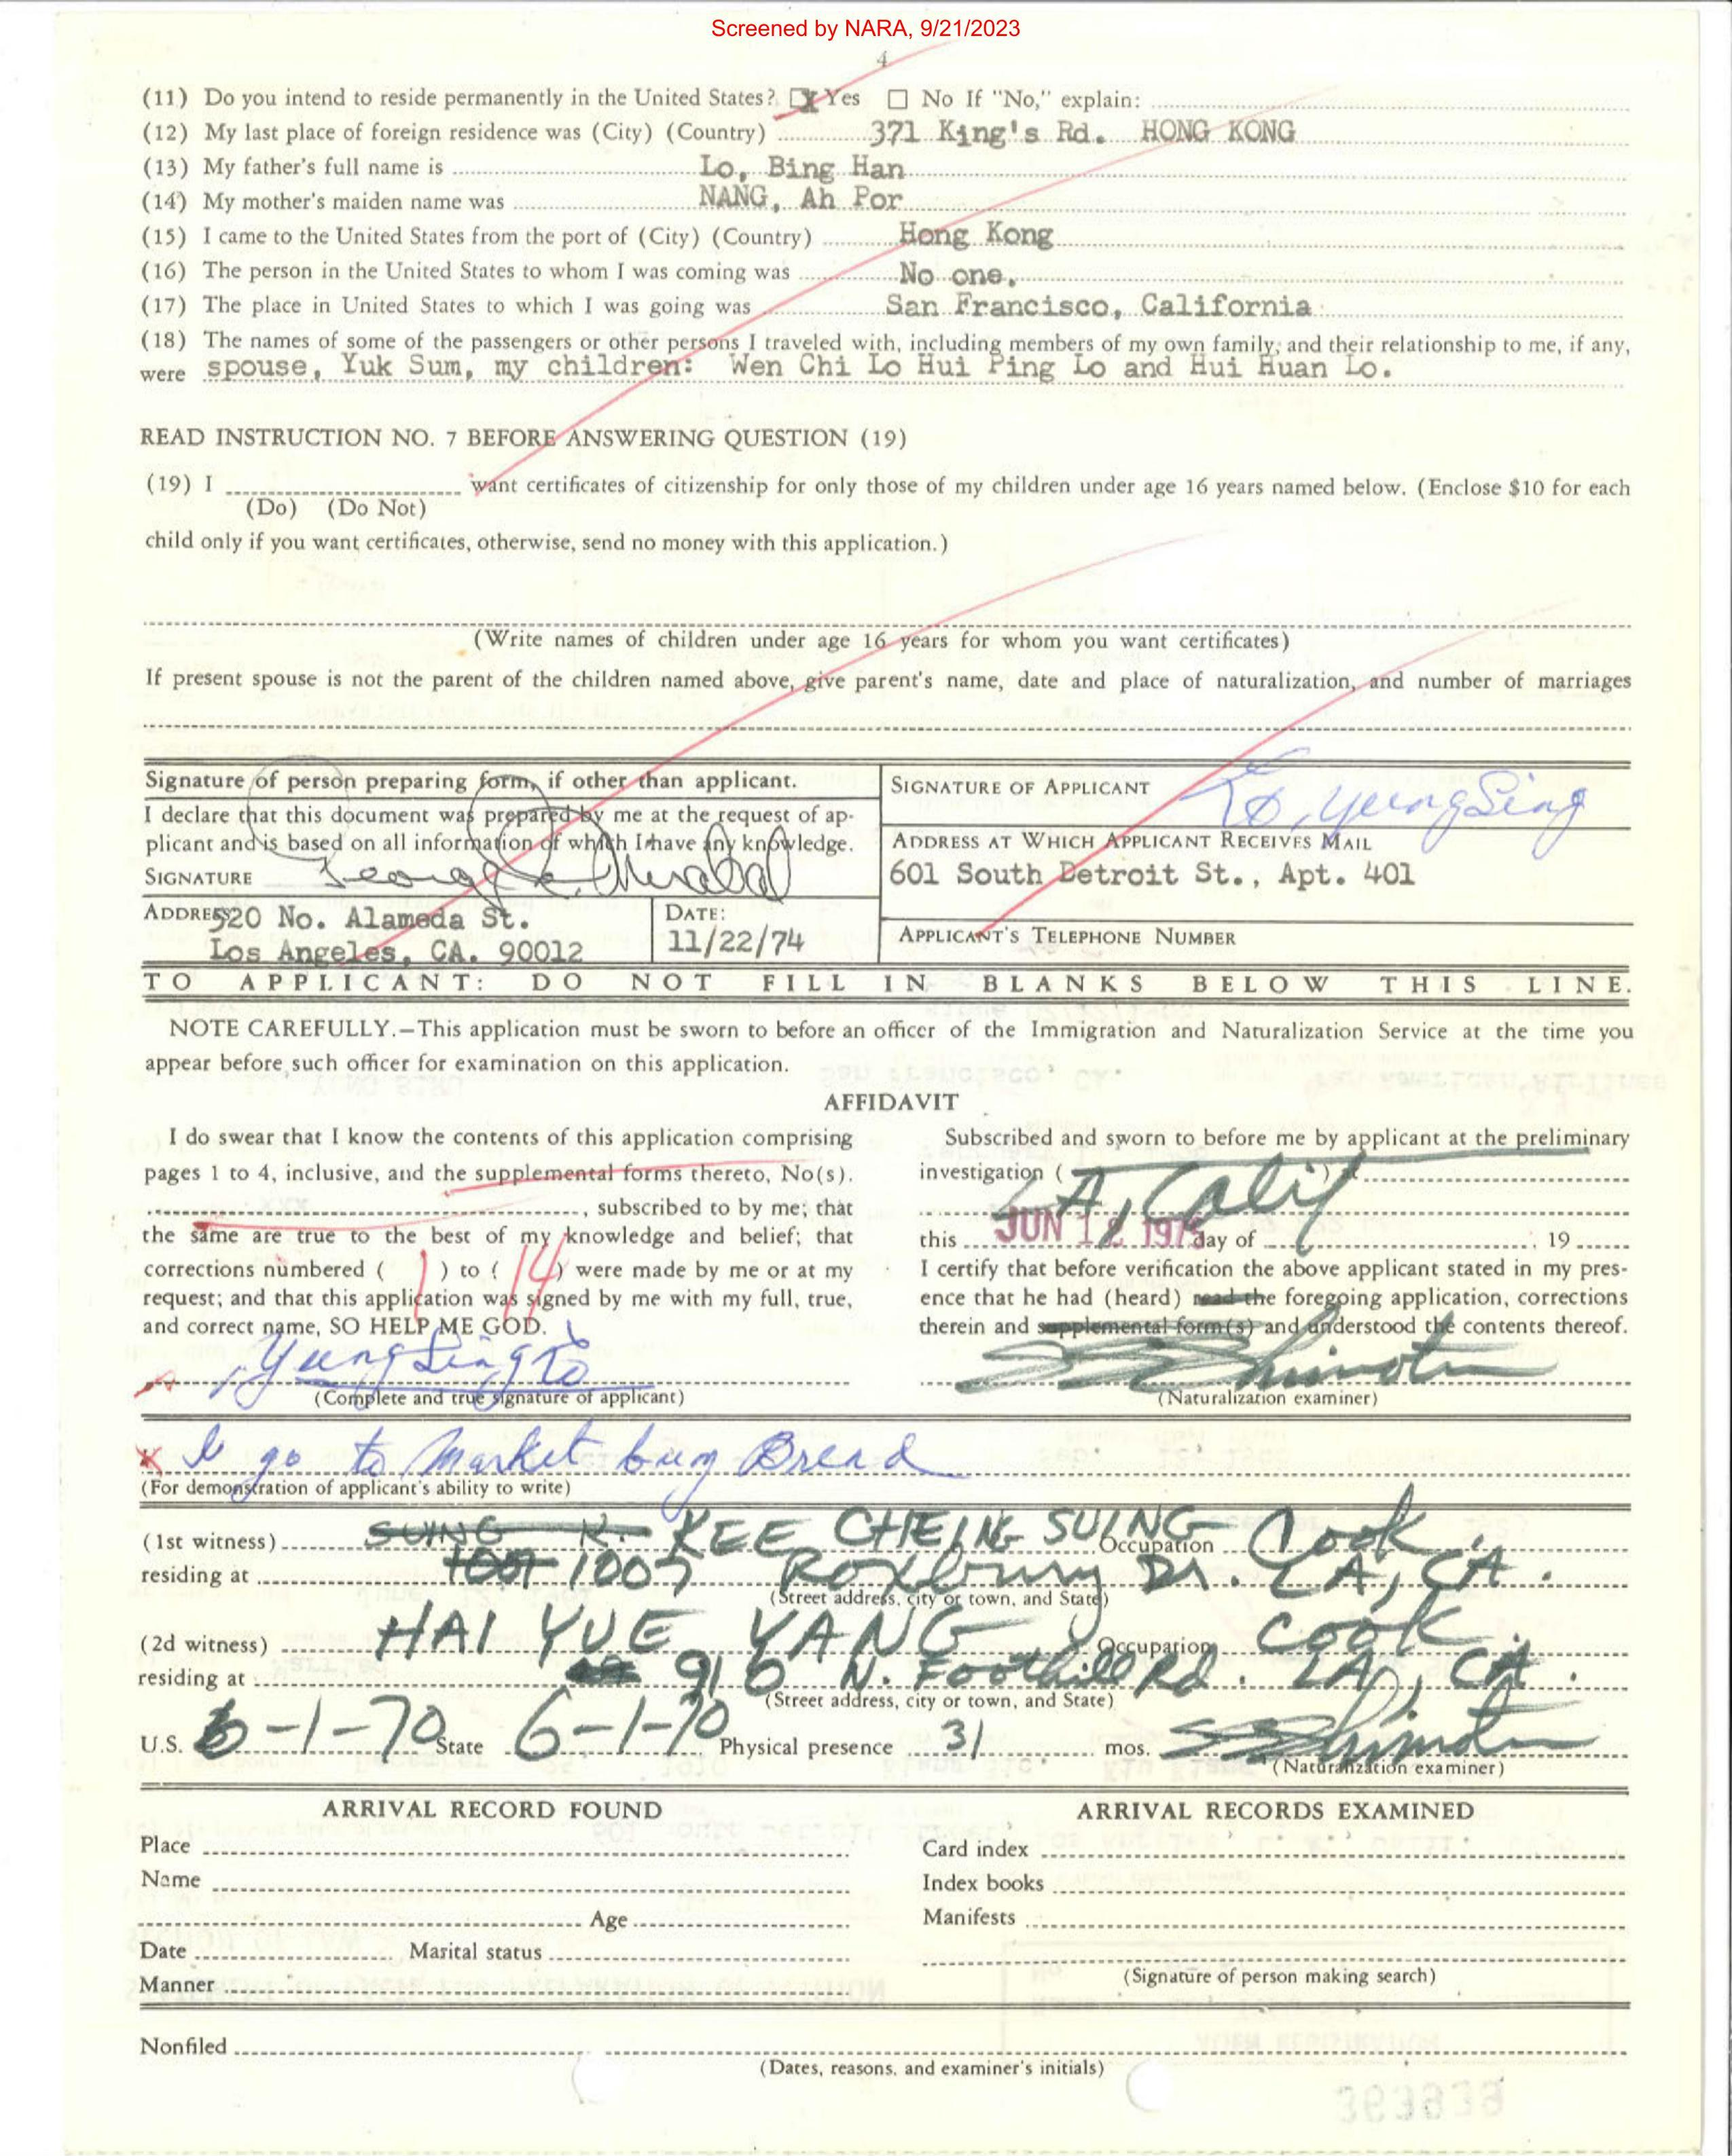 Screened by NARA, 9/21/2023
4
(11) Do you intend to reside permanently in the United States? [X] Yes [ ] No If "No," explain:
(12) My last place of foreign residence was (City) (Country) 371 King's Rd. HONG KONG
(13) My father's full name is Lo, Bing Han
(14) My mother's maiden name was NANG, Ah Por
(15) I came to the United States from the port of (City) (Country) Hong Kong
(16) The person in the United States to whom I was coming was No one.
(17) The place in United States to which I was going was San Francisco, California
(18) The names of some of the passengers or other persons I traveled with, including members of my own family, and their relationship to me, if any,
were spouse, Yuk Sum, my children: Wen Chi Lo Hui Ping Lo and Hui Huan Lo.
READ INSTRUCTION NO. 7 BEFORE ANSWERING QUESTION (19)
(19) I want certificates of citizenship for only those of my children under age 16 years named below. (Enclose $10 for each
(Do) (Do Not)
child only if you want certificates, otherwise, send no money with this application.)
(Write names of children under age 16 years for whom you want certificates)
If present spouse is not the parent of the children named above, give parent's name, date and place of naturalization, and number of marriages
Signature of person preparing form, if other than applicant.
I declare that this document was prepared by me at the request of ap-
plicant and is based on all information of which I have any knowledge.
SIGNATURE
ADDRESS 520 No. Alameda St.
Los Angeles, CA. 90012
DATE:
11/22/74
SIGNATURE OF APPLICANT Lo, Yeung Sing
ADDRESS AT WHICH APPLICANT RECEIVES MAIL
601 South Detroit St., Apt. 401
APPLICANT'S TELEPHONE NUMBER
TO APPLICANT: DO NOT FILL IN BLANKS BELOW THIS LINE.
NOTE CAREFULLY.—This application must be sworn to before an officer of the Immigration and Naturalization Service at the time you
appear before such officer for examination on this application.
AFFIDAVIT
I do swear that I know the contents of this application comprising
pages 1 to 4, inclusive, and the supplemental forms thereto, No(s).
, subscribed to by me; that
the same are true to the best of my knowledge and belief; that
corrections numbered ( 1 ) to ( 14 ) were made by me or at my
request; and that this application was signed by me with my full, true,
and correct name, SO HELP ME GOD.
Yeung Sing Lo
(Complete and true signature of applicant)
Subscribed and sworn to before me by applicant at the preliminary
investigation ( ) at
LA, Calif
this JUN 12 1975 day of , 19
I certify that before verification the above applicant stated in my pres-
ence that he had (heard) read the foregoing application, corrections
therein and supplemental form(s) and understood the contents thereof.
(Naturalization examiner)
X I go to Market buy Bread
(For demonstration of applicant's ability to write)
(1st witness) SUING K. KEE CHEING SUING Occupation Cook
residing at 1007 1005 Roxbury Dr. LA, CA.
(Street address, city or town, and State)
(2d witness) HAI YUE YANG Occupation Cook
residing at 910 N. Foothill Rd. LA, CA.
(Street address, city or town, and State)
U.S. 6-1-70 State 6-1-70 Physical presence 31 mos.
(Naturalization examiner)
ARRIVAL RECORD FOUND
Place
Name
Age
Date Marital status
Manner
ARRIVAL RECORDS EXAMINED
Card index
Index books
Manifests
(Signature of person making search)
Nonfiled
(Dates, reasons, and examiner's initials)